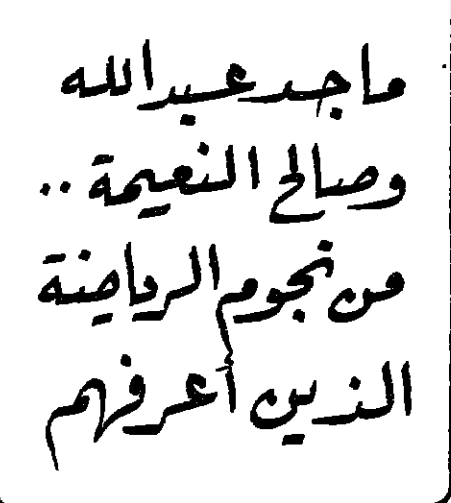 ماجد عبدالله
وصالح النعيمة ..
من نجوم الرياضة
الذين أعرفهم